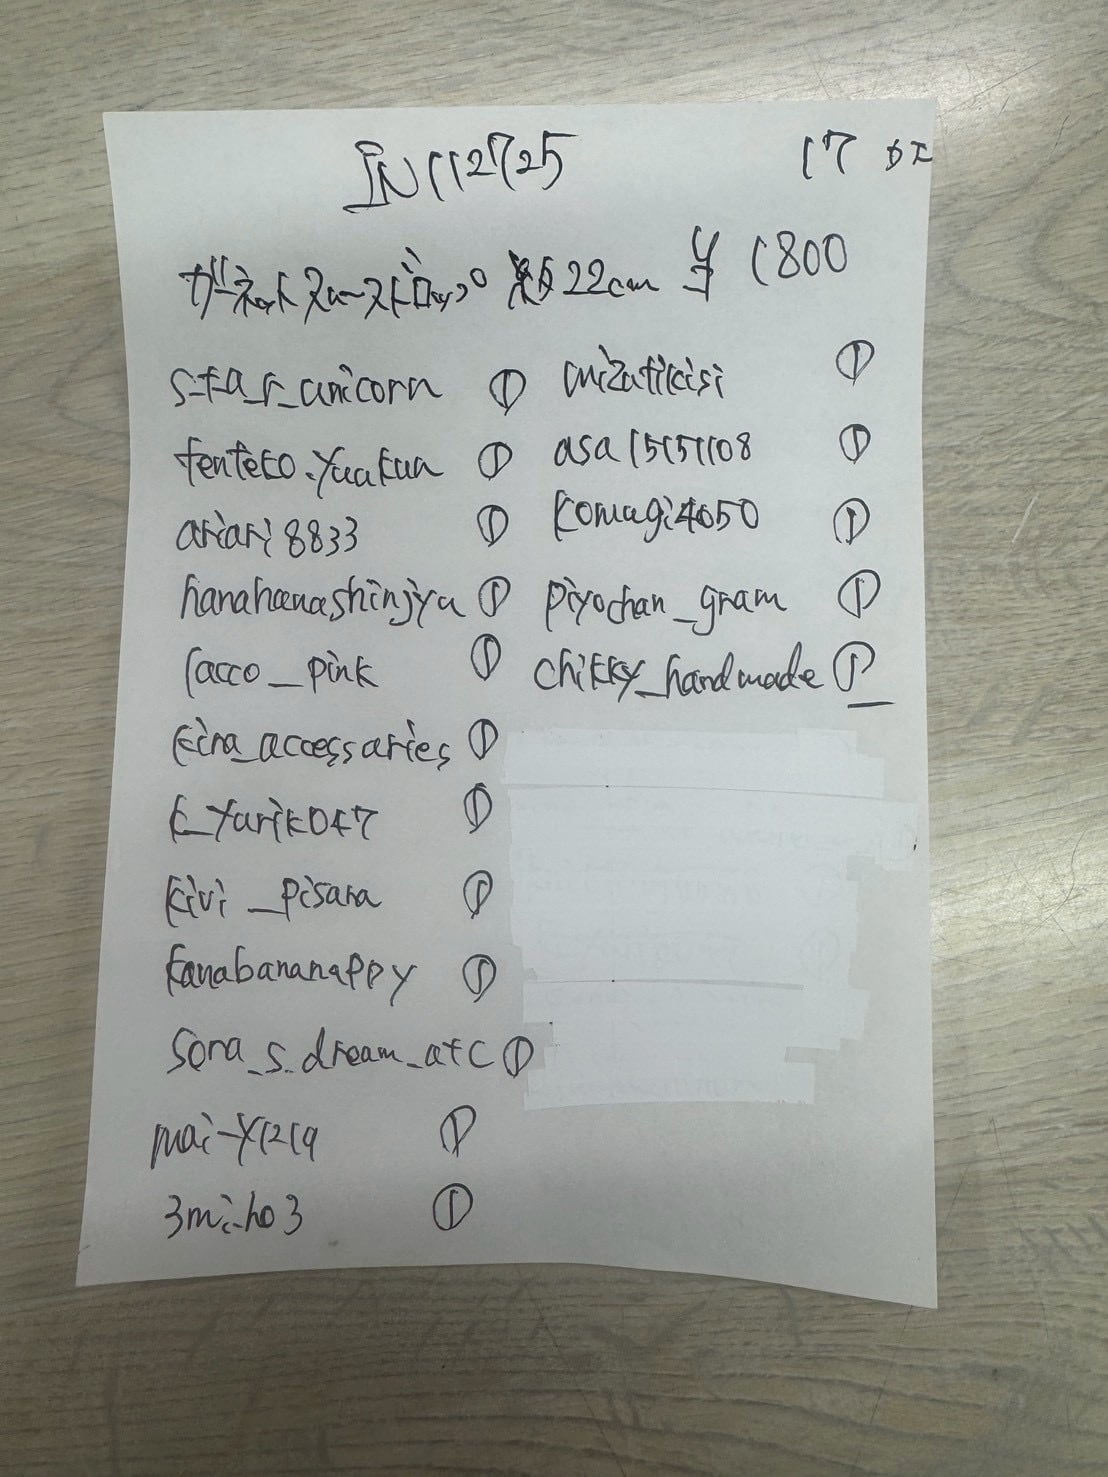 IN112725 17点
ガーネットスムースドロップ 約22cm ¥1800
s-t-a_r_unicorn ①
tenteko.yuukun ①
ariari8833 ①
hanahanashinjyu ①
racco_pink ①
kira_accessaries ①
k_yuriko47 ①
kivi_pisara ①
kanabananappy ①
sora_s_dream_atc ①
mai-y1219 ①
3mi-ho3 ①
mizutikisi ①
asa15151108 ①
komugi4050 ①
piyochan_gram ①
chikky_handmade ①